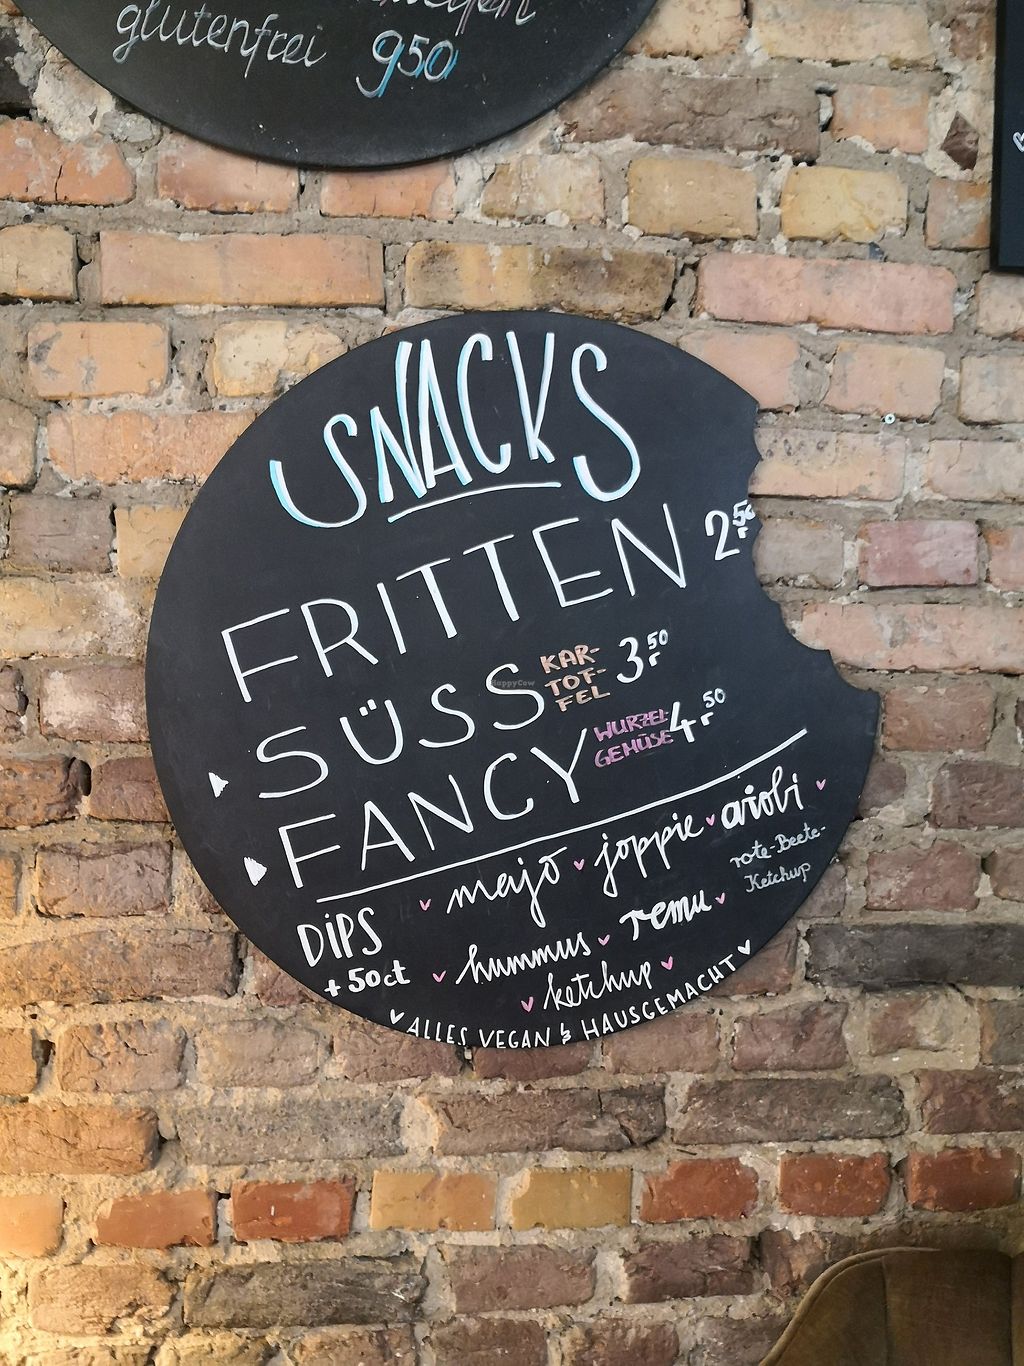 glutenfrei 950
SNACKS
FRITTEN 2,50
SÜSS KAR-
TOF-
FEL 3,50
FANCY WURZEL-
GEMÜSE 4,50
DIPS
+50ct
majo joppie aiobi
hummus remu rote-Beete-
Ketchup
ketchup
ALLES VEGAN & HAUSGEMACHT
HappyCow